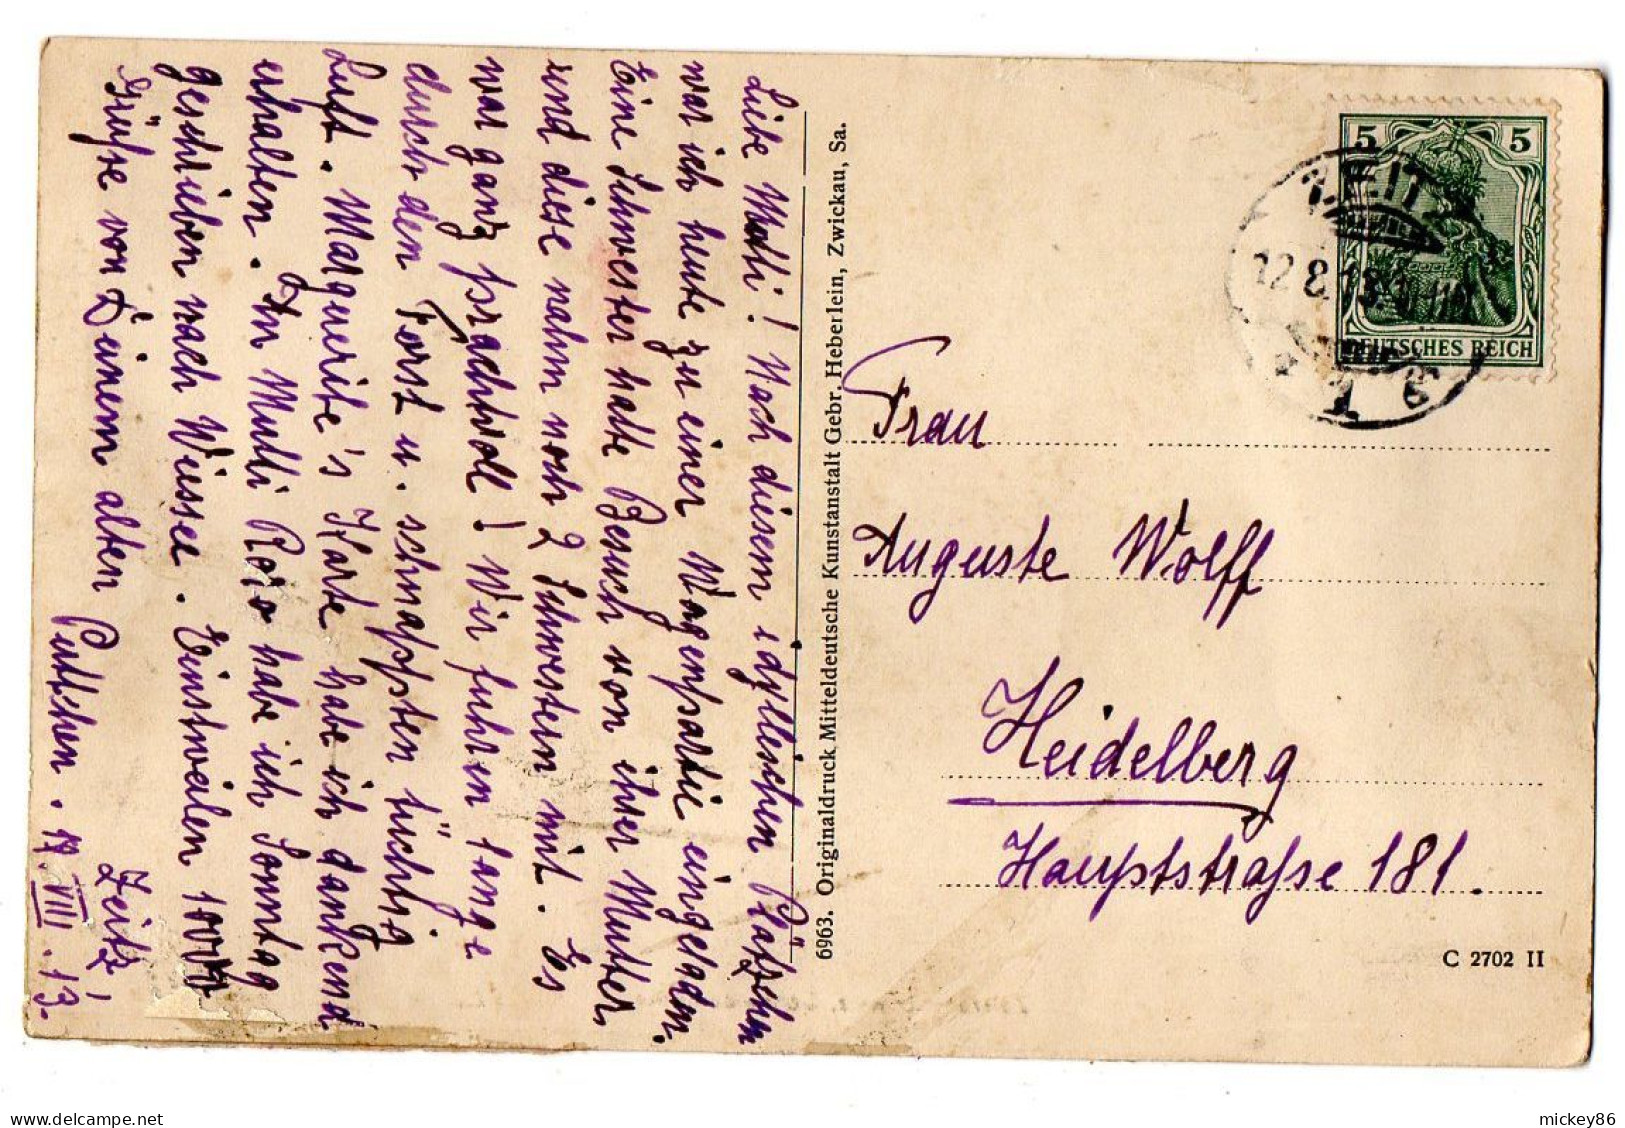 Liebe Mutti! Nach diesem idyllischen Plätzchen
war ich heute zu einer Wagenpartie eingeladen.
Eine Schwester hatte Besuch von ihrer Mutter,
und diese nahm noch 2 Schwestern mit. Es
war ganz prachtvoll! Wir fuhren lange
durch den Forst u. schnappten tüchtig
Luft. Marguerite's Karte habe ich dankend
erhalten. An Mutti Roro habe ich Sonntag
geschrieben nach Wiessee. Einstweilen 1000
Grüsse von Deinem alten
Zeitz,
VIII. 13.
6963. Originaldruck Mitteldeutsche Kunstanstalt Gebr. Heberlein, Zwickau, Sa.
5 5
DEUTSCHES REICH
ZEITZ
12.8.13
Frau
Auguste Wolff
Heidelberg
Hauptstrasse 181.
C 2702 II
mickey86